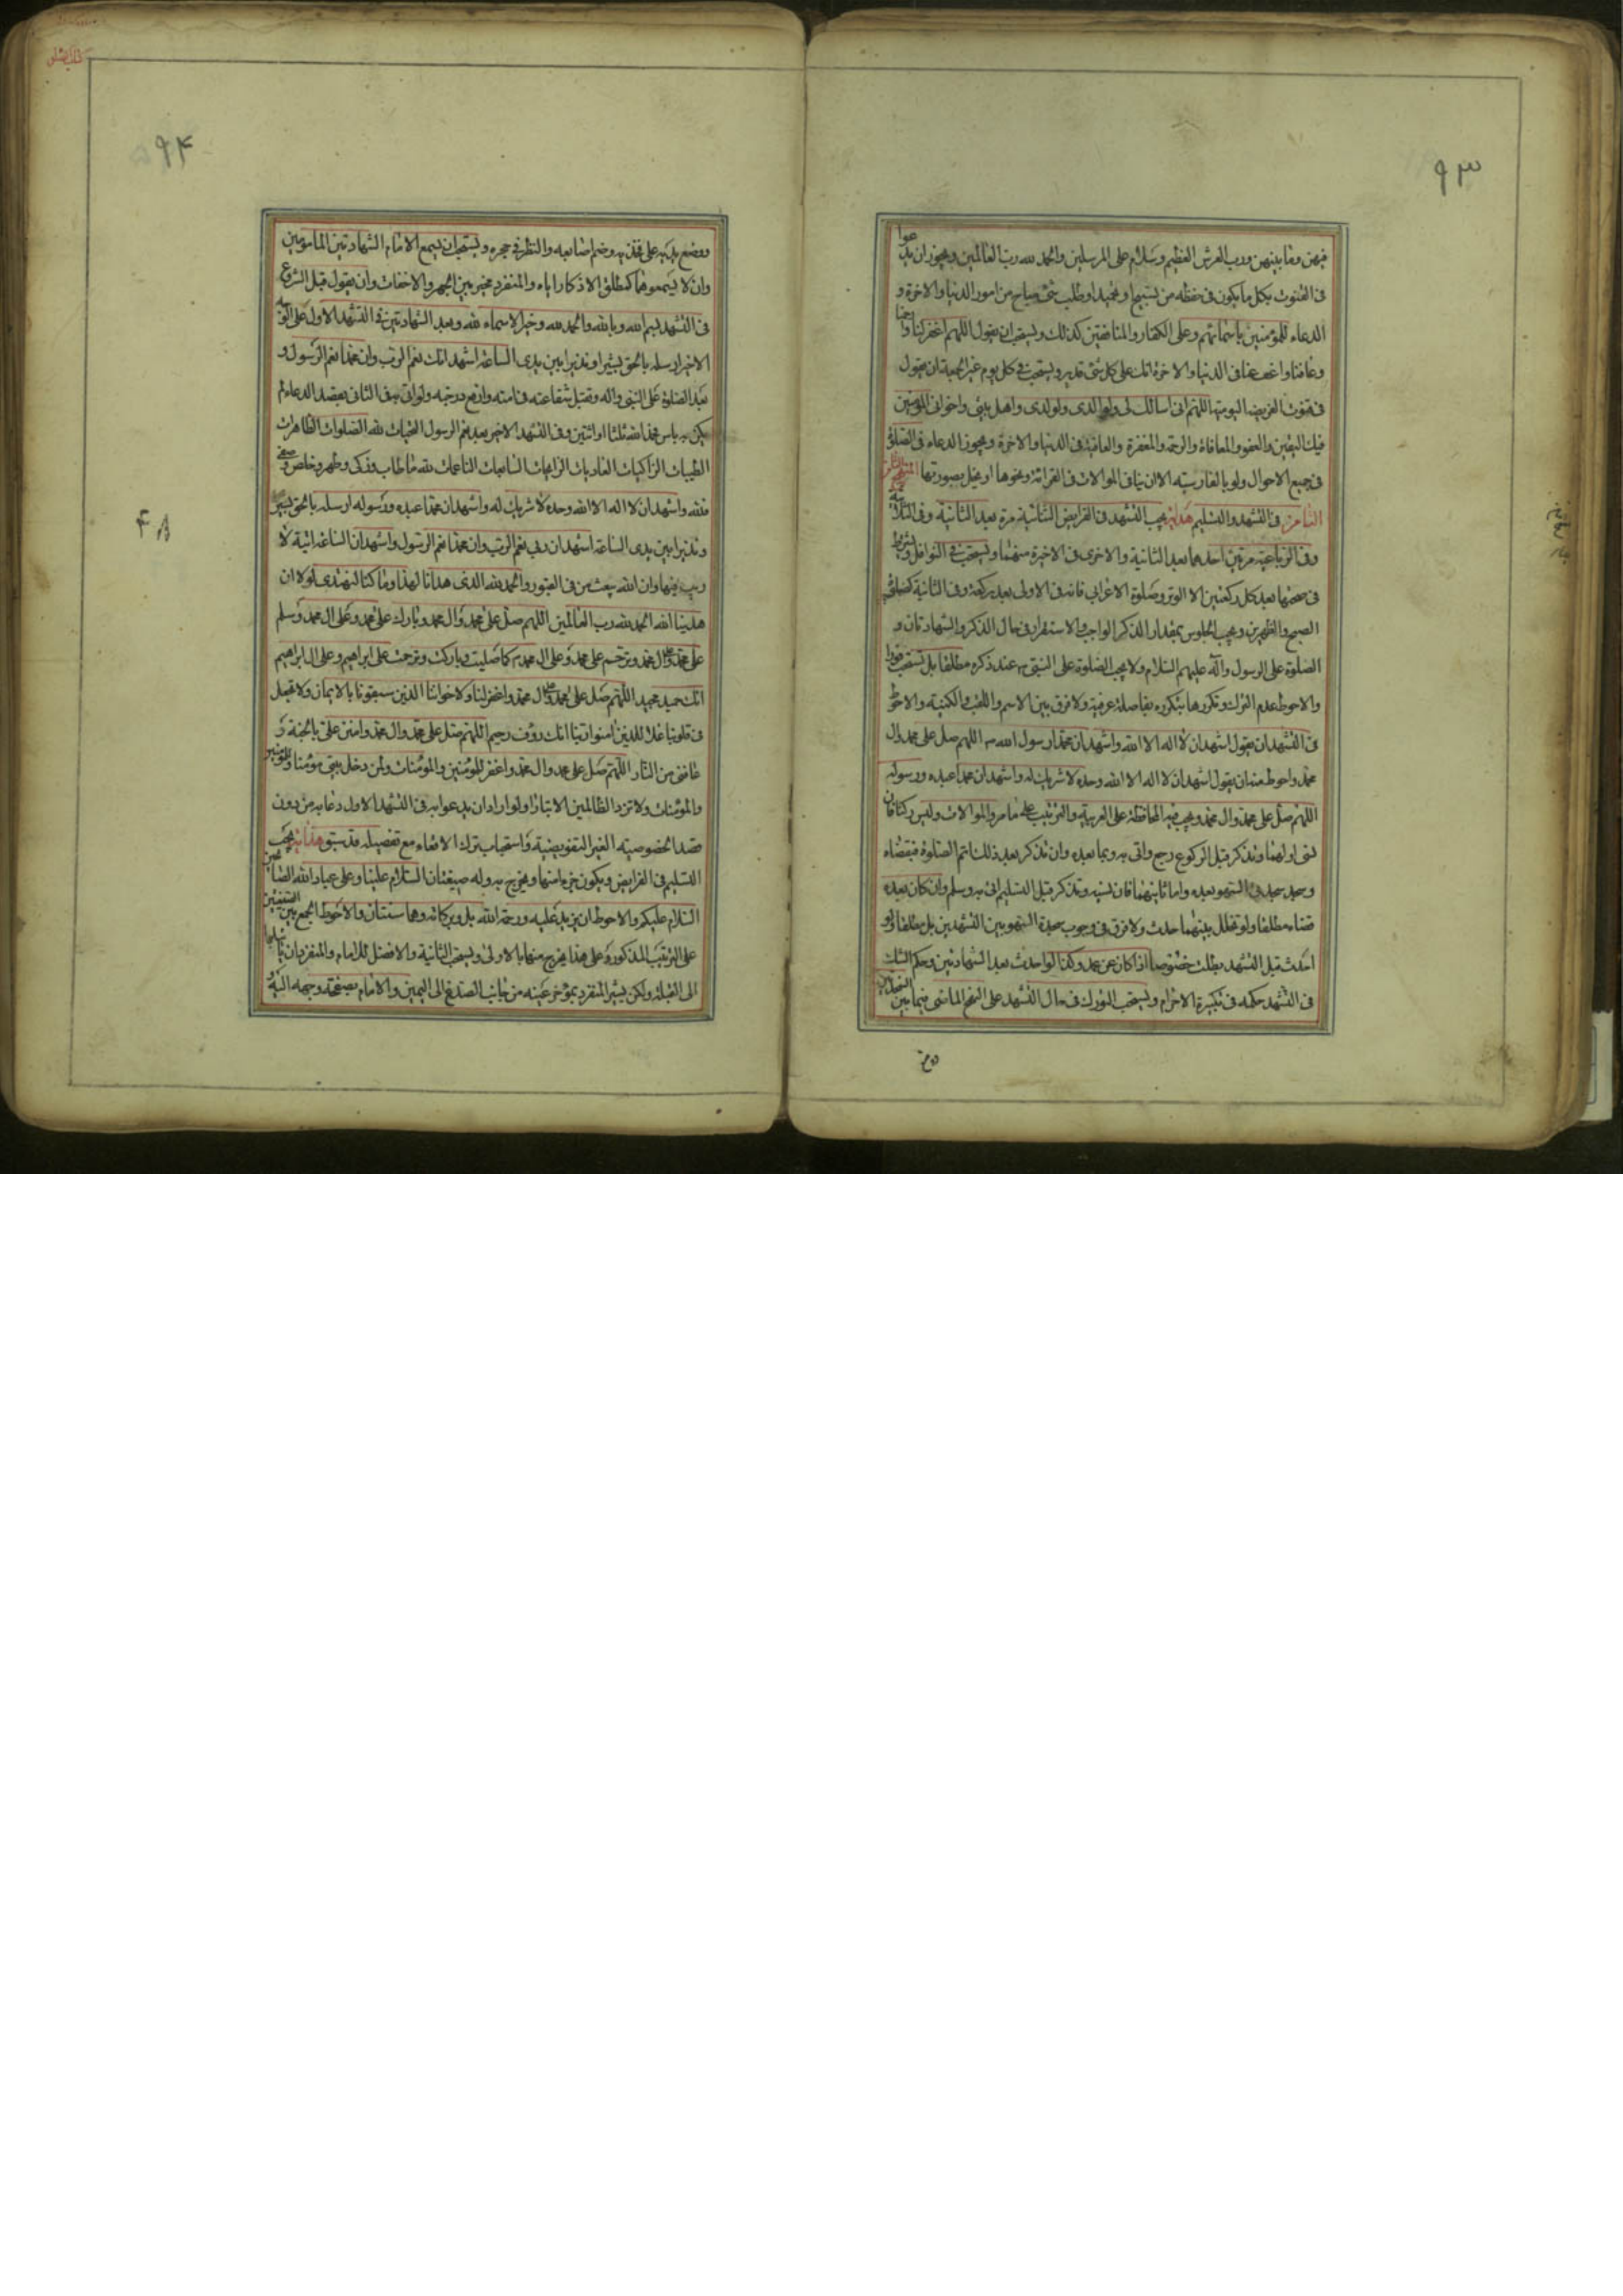 ۹۳
فيهن وما بينهن ورب العرش العظيم وسلام على المرسلين والحمد لله رب العالمين ويجوز ان يدعوا
فى القنوت بكل ما يكون فى حفظه من تسبيح او تمجيد او طلب شئ مباح من امور الدنيا والاخرة و
الدعاء للمؤمنين باسمائهم وعلى الكفار والمنافقين كذلك ويستحب ان يقول اللهم اغفر لنا وارحمنا
وعافنا واعف عنا فى الدنيا والاخرة انك على كل شئ قدير ويستحب فى كل يوم غير الجمعة ان يقول
فى قنوت الفريضة اليومية اللهم انى اسالك لى ولوالدى ولولدى واهل بيتى واخوانى المؤمنين
فيك اليقين والعفو والمعافاة والرحمة والمغفرة والعافية فى الدنيا والاخرة ويجوز الدعاء فى الصلوة
فى جميع الاحوال ولو بالفارسية الا ان ينافى الموالات فى القرائة ونحوها او يخل بصورتها المنهج
الثامن فى التشهد والتسليم هداية يجب التشهد فى الفرايض الثنائية مرة بعد الثانية وفى الثلاثية
وفى الرباعية مرتين احدهما بعد الثانية والاخرى فى الاخيرة منهما ويستحب فى النوافل ويشترط
فى صحتها بعد كل ركعتين الا الوتر وصلوة الاعرابى فانه فى الاولى بعد ركعة وفى الثانية كصلوة
الصبح والظهرين ويجب الجلوس بمقدار الذكر الواجب والاستقرار فى حال الذكر والشهادتان و
الصلوة على الرسول وآله عليهم السلام ولا يجب الصلوة على النبى ص عند ذكره مطلقا بل تستحب مؤكدا
والاحوط عدم الترك وتكررها بتكرره بفاصلة عرفية ولا فرق بين الاسم واللقب والكنية والاحوط
فى التشهد ان يقول اشهد ان لا اله الا الله واشهد ان محمدا رسول الله ص اللهم صل على محمد وال
محمد واحوط منه ان يقول اشهد ان لا اله الا الله وحده لا شريك له واشهد ان محمدا عبده ورسوله
اللهم صل على محمد وال محمد ويجب فيه المحافظة على العربية والترتيب على ما مر والموالات وليس ركنا فان
نسى اولهما وتذكر قبل الركوع رجع واتى به وبما بعده وان تذكر بعد ذلك اتم الصلوة فيقضاه
وسجد سجدتى السهو بعده واما ثانيهما فان نسيه وتذكر قبل التسليم اتى به وسلم وان كان بعده
قضاه مطلقا ولو تخلل بينهما حدث ولا فرق فى وجوب سجدة السهو بين التشهدين بل مطلقا ولو
احدث قبل التشهد بطلت خصوصا اذا كان عن عمد وكذا لو احدث بعد الشهادتين وحكم الشك
فى التشهد حكمه فى تكبيرة الاحرام ويستحب التورك فى حال التشهد على النهج الماضى فيما بين السجدتين
ووضع
۹۴
ووضع يديه على فخذيه وضم اصابعه والنظر فى حجره ويستحب ان يسمع الامام الشهادتين المامومين
وان لا يسمعوها كمطلق الاذكار اياه والمنفرد مخير بين الجهر والاخفات وان يقول قبل الشروع
فى التشهد بسم الله وبالله والحمد لله وخير الاسماء لله وبعد الشهادتين فى التشهد الاول على
الاخير ارسله بالحق بشيرا ونذيرا بين يدى الساعة اشهد انك نعم الرب وان محمدا نعم الرسول و
بعد الصلوة على النبى واله وتقبل شفاعته فى امته وارفع درجته ولو اتى به فى الثانى بقصد الدعاء لم
يكن به باس فحمد الله ثلثا او اثنتين وفى التشهد الاخير بعد نعم الرسول التحيات لله الصلوات الطاهرات
الطيبات الزاكيات الغاديات الرايحات السابغات الناعمات لله ما طاب وزكى وطهر وخلص وصفى
فلله واشهد ان لا اله الا الله وحده لا شريك له واشهد ان محمدا عبده ورسوله ارسله بالحق بشيرا
ونذيرا بين يدى الساعة اشهد ان ربى نعم الرب وان محمدا نعم الرسول واشهد ان الساعة اتية لا
ريب فيها وان الله يبعث من فى القبور والحمد لله الذى هدانا لهذا وما كنا لنهتدى لولا ان
هدينا الله الحمد لله رب العالمين اللهم صل على محمد وال محمد وبارك على محمد وعلى ال محمد وسلم
على محمد وعلى ال محمد وترحم على محمد وعلى ال محمد كما صليت وباركت وترحمت على ابراهيم وعلى ال ابراهيم
انك حميد مجيد اللهم صل على محمد وعلى ال محمد واغفر لنا ولاخواننا الذين سبقونا بالايمان ولا تجعل
فى قلوبنا غلا للذين امنوا ربنا انك رؤف رحيم اللهم صل على محمد وال محمد وامنن على بالجنة و
عافنى من النار اللهم صل على محمد وال محمد واغفر للمؤمنين والمؤمنات ولمن دخل بيتى مؤمنا وللمؤمنين
والمؤمنات ولا تزد الظالمين الا تبارا ولو اراد ان يدعو به فى التشهد الاول دعا به من دون
قصد الخصوصية الغير التفويضية واستحباب ترك الاقعاء مع تفصيله قد سبق هداية يجب
التسليم فى الفرايض ويكون جزءا منها ويخرج به وله صيغتان السلام علينا وعلى عباد الله الصالحين
السلام عليكم والاحوط ان يزيد عليه ورحمة الله بل وبركاته وهما سنتان والاحوط الجمع بين الصيغتين
على الترتيب المذكور وعلى هذا يخرج منها بالاولى ويستحب الثانية والافضل للامام والمنفرد ان
الى القبلة ولكن يشير المنفرد بمؤخر عينه من جانب الصدغ الى اليمين والامام بصفحة وجهه اليه و
۴۸